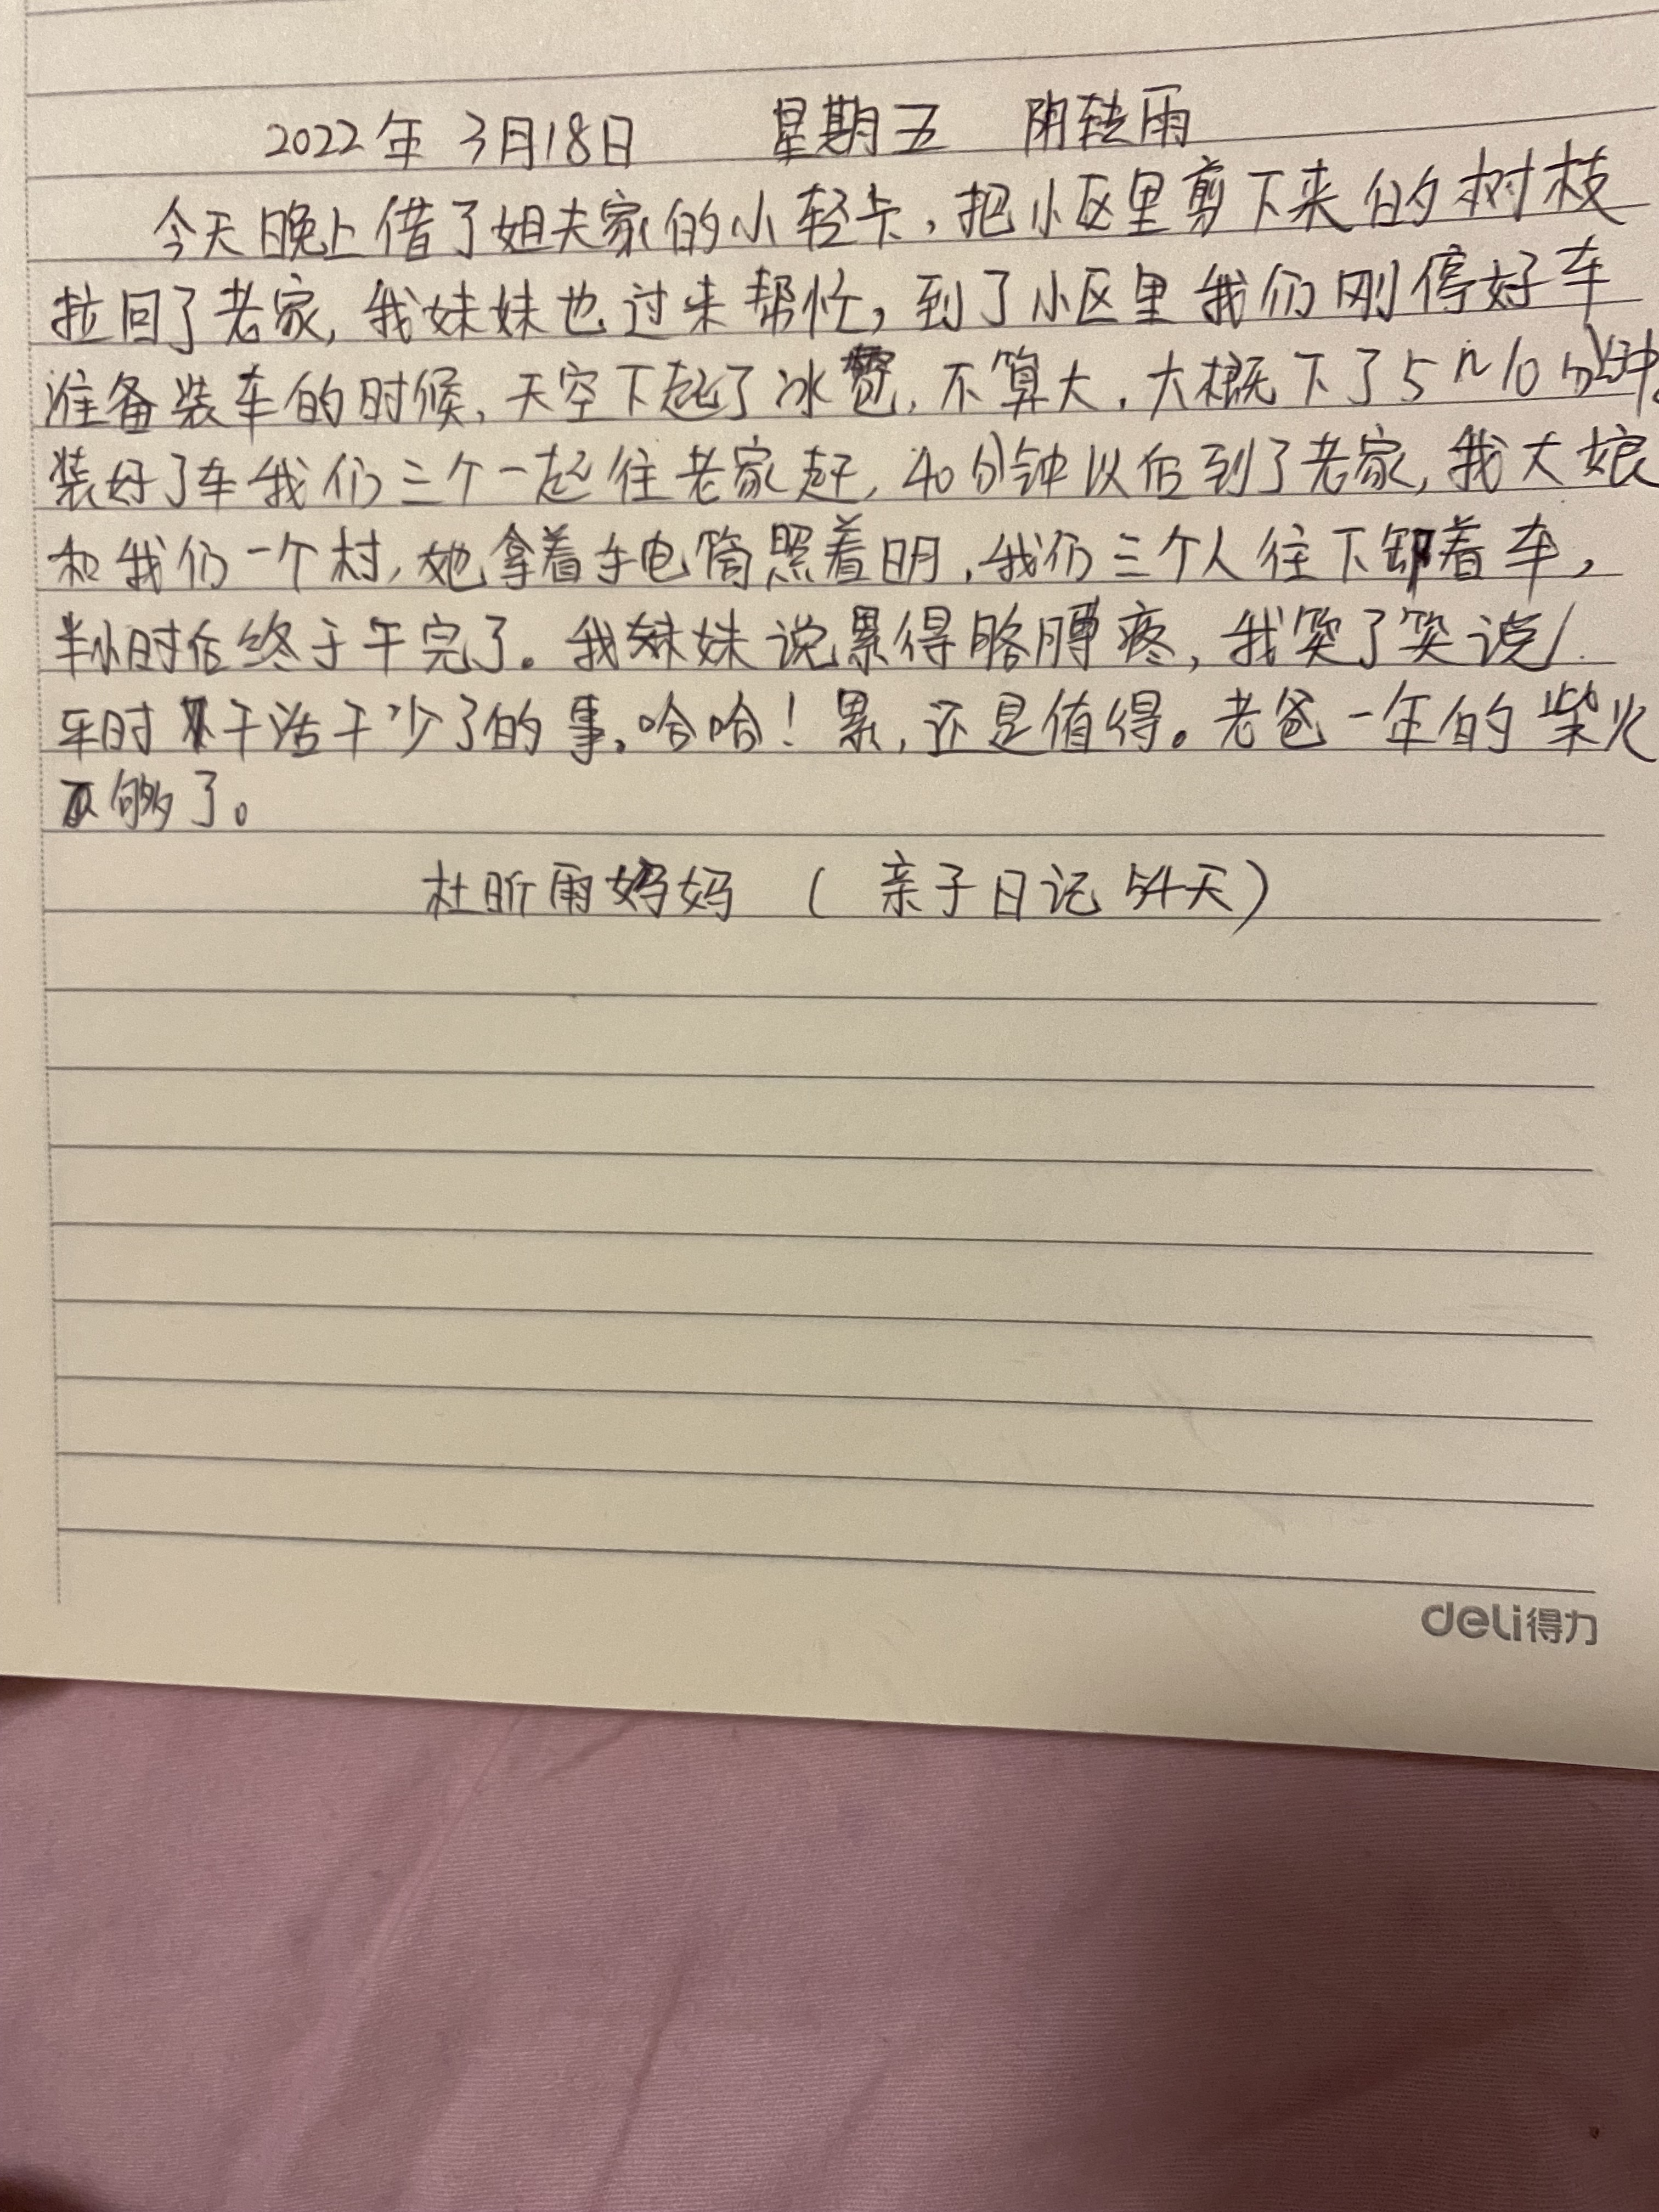 2022年 3月18日 星期五 阴转雨
今天晚上借了姐夫家的小轻卡,把小区里剪下来的树枝
拉回了老家,我妹妹也过来帮忙,到了小区里我们刚停好车
准备装车的时候,天空下起了冰雹,不算大,大概下了5~10分钟。
装好了车我们三个一起往老家赶,40分钟以后到了老家,我大娘
和我们一个村,她拿着手电筒照着明,我们三个人往下卸着车,
半小时后终于干完了。我妹妹说累得胳膊疼,我笑了笑说!
平时干活干少了的事。哈哈!累,还是值得。老爸一年的柴火
够了。
杜昕雨妈妈 (亲子日记54天)
deli得力